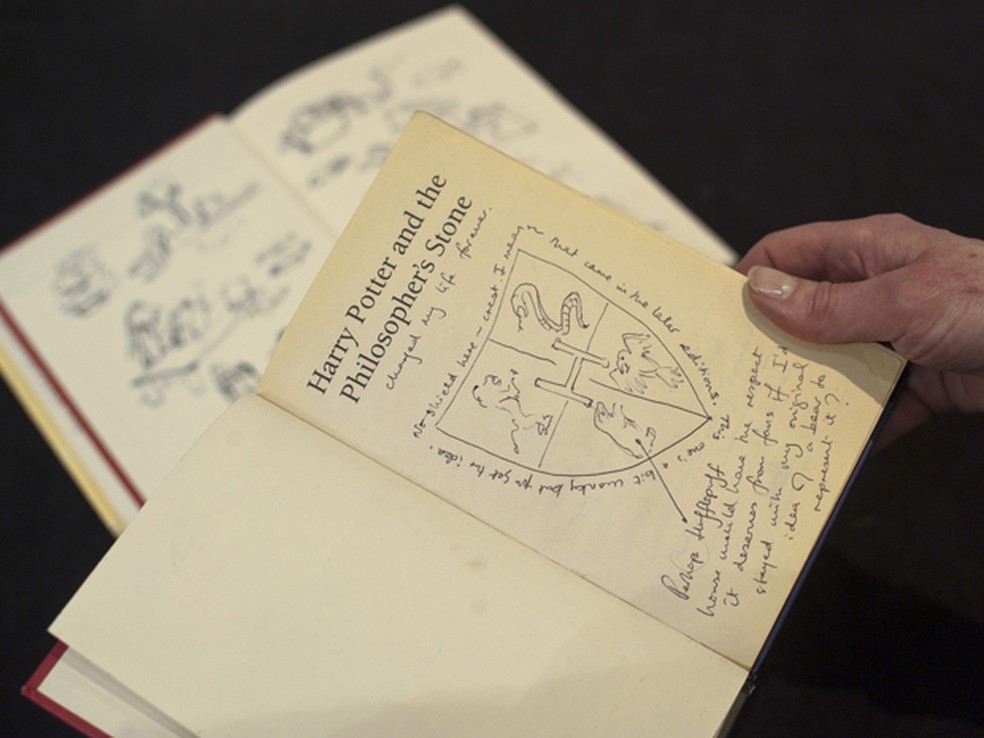 Harry Potter and the
Philosopher's Stone
changed my life forever.
No shield here – crest. I mean
that came in the later editions. This
one's a bit wonky but you get the idea!
Perhaps Hufflepuff
house would have the respect
it deserves from fans if I'd
stayed with my original
idea of a bear to
represent it?
H